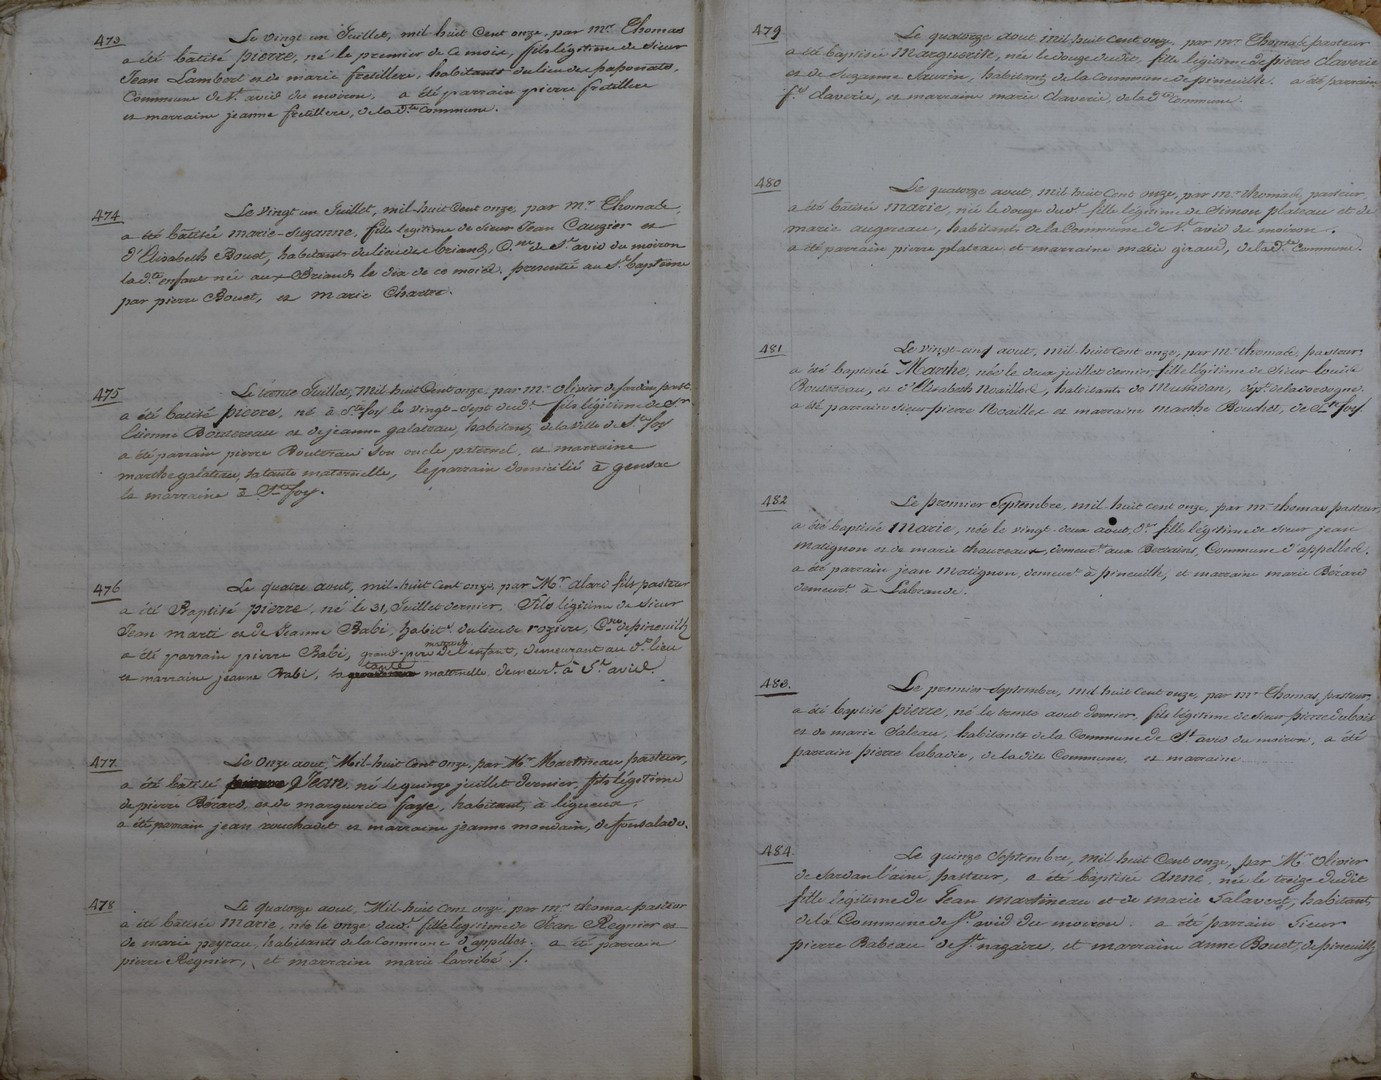 473
Le vingt un Juillet, mil huit Cent onze, par mr. Thomas
a été batisé pierre, né le premier de ce mois, fils légitime de Sieur
Jean Lambert et de marie fretillere, habitants du lieu des paponats,
Commune de St. avid du moiron, a été parrain pierre fretillere
et marraine jeanne fretillere, de la dte. Commune.
474
Le vingt un Juillet, mil-huit Cent onze, par mr Thomas,
a été bâtisée marie-Suzanne, fille legitime de Sieur Jean Cauzier et
d'Elisabeth Bouet, habitants du lieu des briands, Cne. de St. avid du moiron
la dte. enfant née aux Briands le dix de ce mois. presentée au St. baptême
par pierre Bouet, et marie Chartre.
475
Le trente Juillet, Mil-huit Cent onze, par mr. Olivier de Sardan past.
a été batisé pierre, né à Ste foy le vingt-sept dudt. fils légitime de Sr.
Etienne Boutereau et de jeanne galateau, habitants de la ville de Ste foy
a été parrain pierre Boutereau son oncle paternel, et marraine
marthe galateau, sa tante maternelle, le parrain domicilié à gensac
la marraine à Ste foy.
476
Le quatre aout, mil-huit Cent onze, par Mr. alard fils pasteur
a été Baptisé pierre, né le 31, Juillet dernier, Fils légitime de Sieur
Jean marti et de Jeanne Babi, habits. du lieu de rogiere, Cne. de pineuilh
a été parrain pierre Babi, grand-pere maternel de l'enfant, demeurant au dt. lieu
et marraine jeanne Babi, sa tante maternelle demeurt. à St. avid.
477
Le Onze aout, Mil-huit Cent onze, par Mr. Martineau pasteur,
a été batisé Jean, né le quinze juillet dernier, fils légitime
de pierre Bérard, et de marguerite faye, habitants à ligueux.
a été parrain jean rouchadet et marraine jeanne mondain, de fonsalade.
478
Le quatorze aout, Mil-huit Cent onze par mr. thomas pasteur
a été batisée marie, née le onze dudt. fille legitime de Jean Regnier et
de marie peyrau, habitants de la Commune d'appelles. a été parrain
pierre Regnier, et marraine marie larribé ./.
479
Le quatorze aout mil-huit Cent onze, par mr Thomas pasteur
a été baptisée Marguerite, née le douze dudit, fille légitime de pierre claverie
et de Suzanne Saurin, habitants de la Commune de pineuilh. a été parrain
fs. claverie, et marraine marie claverie, de la dte commune.
480
Le quatorze aout, mil-huit Cent onze, par mr. thomas, pasteur,
a été bâtisée marie, née le douze dudt. fille légitime de Simon plateau et de
marie augereau, habitants de la Commune de St. avid du moiron.
a été parrain pierre plateau et marraine marie giraud, de la dte Commune.
481
Le vingt-cinq aout, mil-huit Cent onze, par mr. thomas, pasteur,
a été baptisée Marthe, née le deux juillet dernier, fille légitime de Sieur Louis
Boutereau, et d'Elisabeth Noailles, habitants de Mussidan, dépt. de la dordogne.
a été parrain Sieur pierre Noailles et marraine marthe Bouchet, de Ste foy.
482
Le premier Septembre, mil huit cent onze, par mr. thomas pasteur,
a été baptisée marie, née le vingt-deux aout dr. fille légitime de Sieur jean
matignon et de marie chaureaux, demeurt. aux Bertains, Commune d'appelles.
a été parrain jean matignon demeurt. à pineuilh, et marraine marie Bérard
demeurt. à Labrande.
483.
Le premier Septembre, mil huit cent onze, par mr. Thomas, pasteur,
a été baptisé pierre, né le trente aout dernier, fils légitime de Sieur pierre dubois
et de marie Saleau, habitants de la Commune de St. avid du moiron, a été
parrain pierre labadie, de la dite Commune, et marraine
484
Le quinze Septembre, mil huit Cent onze, par Mr. Olivier
de Sardan l'ainé pasteur, a été baptisée anne, née le treize dudit
fille légitime de Jean martineau et de marie Salavert, habitants
de la Commune de St. avid du moiron. a été parrain Sieur
pierre Babeau de St. nazaire, et marraine anne Bouet, de pineuilh